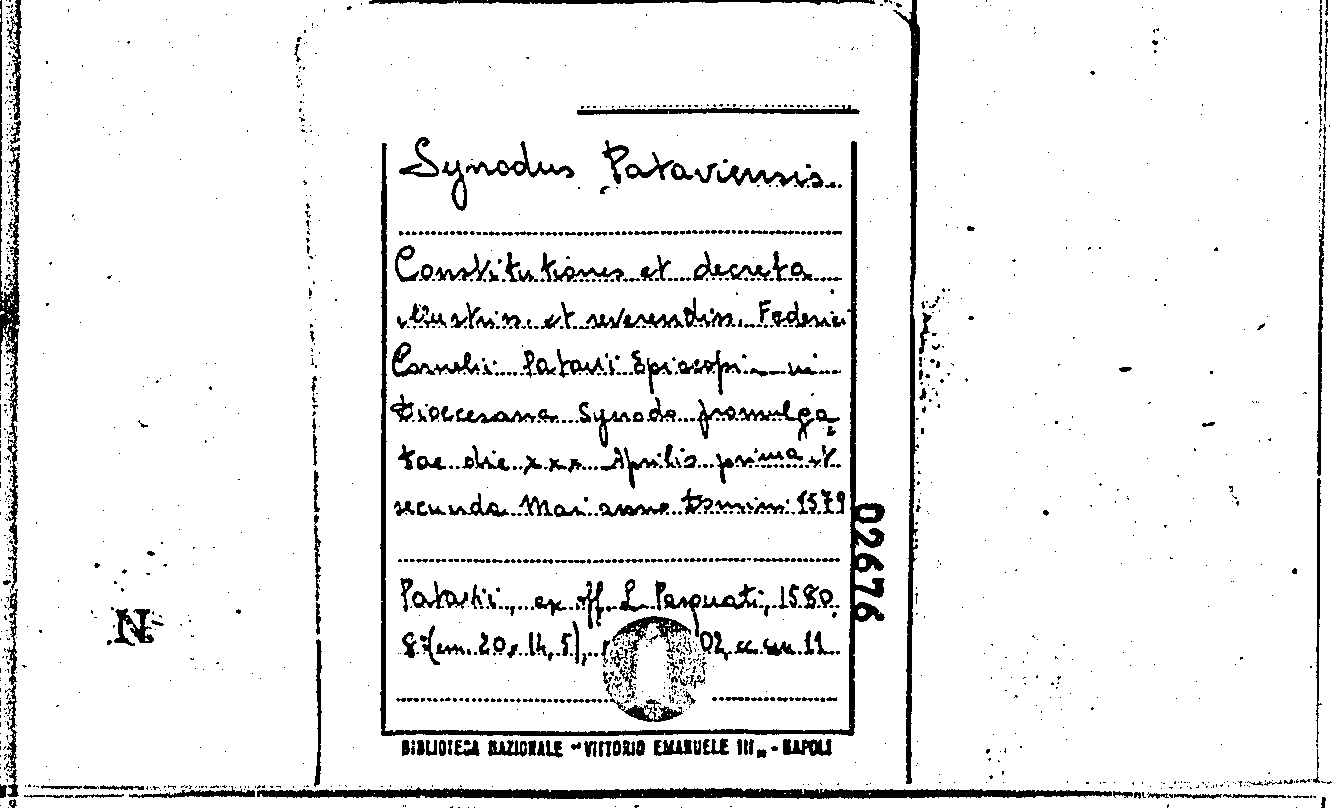 Synodus Pataviensis.
Constitutiones et decreta
illustriss. et reverendiss. Federici
Cornelii Patavii Episcopi in
Dioecesana Synodo promulga
tae die xxx Aprilis prima et
secunda Maii anno Domini 1579
Patavii, ex off. L. Pasquati, 1580.
8° (cm. 20 x 14,5), 02, cc nn 11
02676
N
BIBLIOTECA NAZIONALE "VITTORIO EMANUELE III„ - NAPOLI